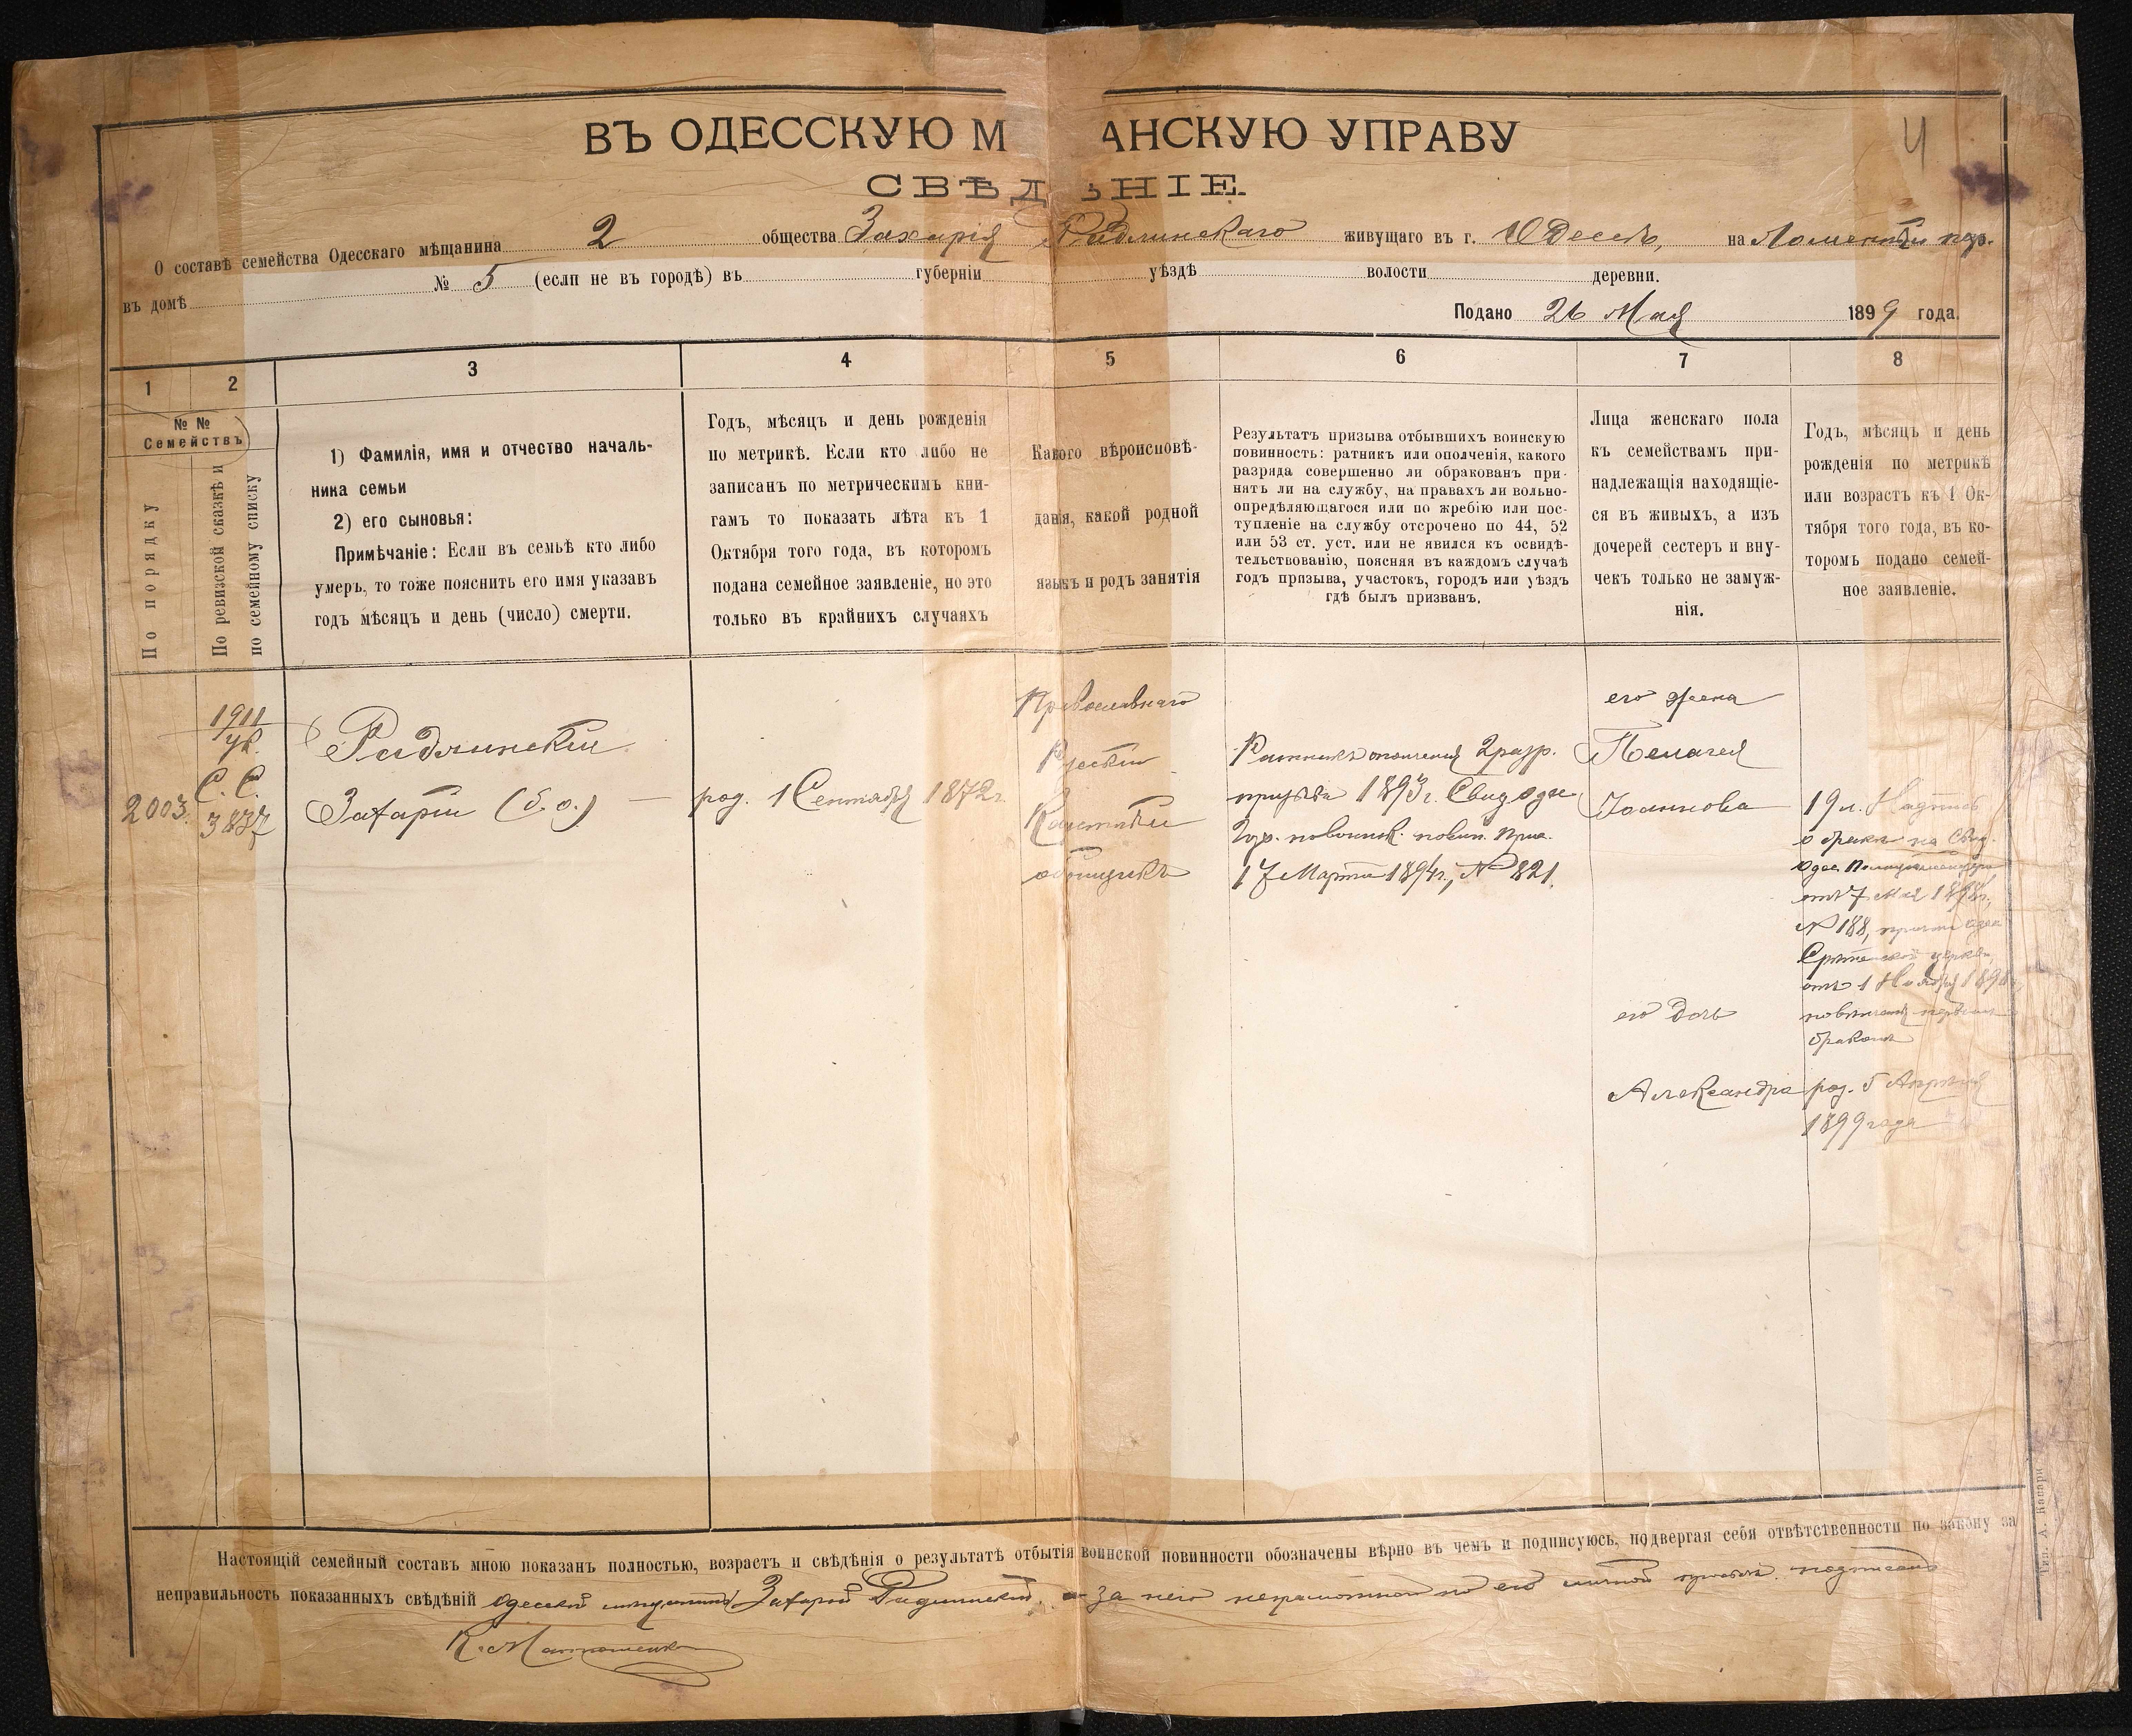 ВЪ ОДЕССКУЮ М АНСКУЮ УПРАВУ
4
СВѢД НІЕ.
О составѣ семейства Одесскаго мѣщанина 2 общества Захарія Радлинскаго живущаго въ г. Одессѣ, на
въ домѣ № 5 (если не въ городѣ) въ губерніи уѣздѣ волости деревни.
Подано 26 Мая 1899 года.
1
2
3
4
5
6
7
8
№ №
Семействъ
По порядку
По ревизской сказкѣ и
по семейному списку
1) Фамилія, имя и отчество началь-
ника семьи
2) его сыновья:
Примѣчаніе: Если въ семьѣ кто либо
умеръ, то тоже пояснить его имя указавъ
годъ мѣсяцъ и день (число) смерти.
Годъ, мѣсяцъ и день рожденія
по метрикѣ. Если кто либо не
записанъ по метрическимъ кни-
гамъ то показать лѣта къ 1
Октября того года, въ которомъ
подана семейное заявленіе, но это
только въ крайнихъ случаяхъ
Какого вѣроисповѣ-
данія, какой родной
языкъ и родъ занятія
Результатъ призыва отбывшихъ воинскую
повинность: ратникъ или ополченія, какого
разряда совершенно ли обракованъ при-
нятъ ли на службу, на правахъ ли вольно-
опредѣляющагося или по жребію или пос-
тупленіе на службу отсрочено по 44, 52
или 53 ст. уст. или не явился къ освидѣ-
тельствованію, поясняя въ каждомъ случаѣ
годъ призыва, участокъ, городъ или уѣздъ
гдѣ былъ призванъ.
Лица женскаго пола
къ семействамъ при-
надлежащія находящіе-
ся въ живыхъ, а изъ
дочерей сестеръ и вну-
чекъ только не замуж-
нія.
Годъ, мѣсяцъ и день
рожденія по метрикѣ
или возрастъ къ 1 Ок-
тября того года, въ ко-
торомъ подано семей-
ное заявленіе.
2003.
1911
ук.
С. С.
3837
Радлинскій
Захарій (б. о.)
род. 1 Сентября 1872 г.
Православнаго
Русскій
Ратникъ ополченія 2 разр.
призыва 1893 г. Свид Одес.
Гор. по воинск. повин. Прис.
17 Марта 1894 г., № 821.
его жена
Пелагея
Іоаннова
19 л. Надпись
о бракѣ на Свид.
Одес.
отъ 7 Мая
№ 188,
Срѣтенской церкви,
отъ 1 Ноября
повѣнчанъ первымъ
бракомъ
его дочь
Александра
род. 5 Апрѣля
1899 года
Настоящій семейный составъ мною показанъ полностью, возрастъ и свѣдѣнія о результатѣ отбытія воинской повинности обозначены вѣрно въ чемъ и подписуюсь, подвергая себя отвѣтственности по закону за
неправильность показанныхъ свѣдѣній Одесскій мѣщанинъ Захарій Радлинскій, а за него неграмотнаго по его личной просьбѣ подписалъ
Тип. А.